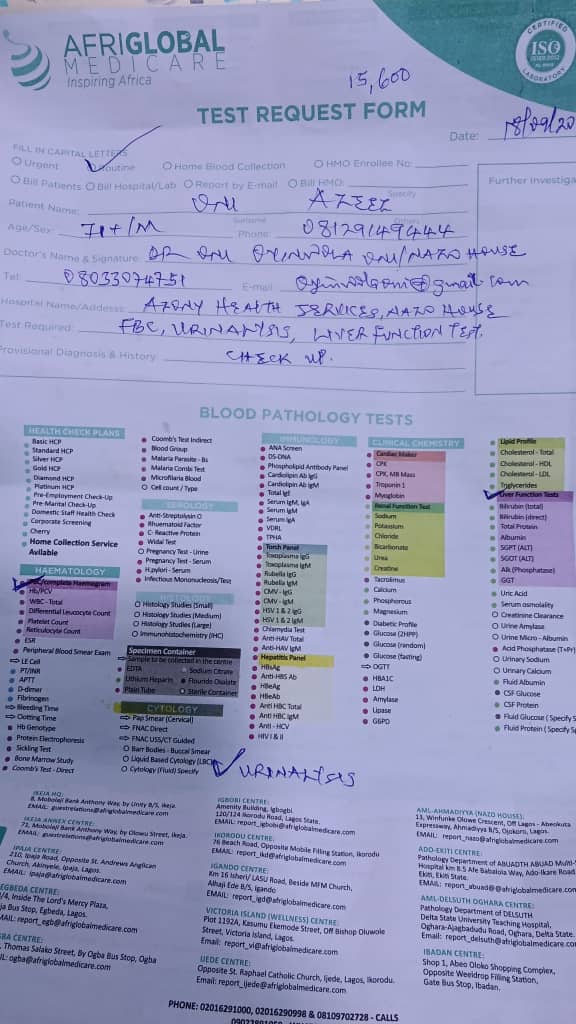 AFRIGLOBAL
MEDICARE
Inspiring Africa
CERTIFIED
ISO
LABORATORY
15,600
TEST REQUEST FORM
Date: 18/09/20
FILL IN CAPITAL LETTERS
Urgent Routine Home Blood Collection HMO Enrollee No:
Bill Patients Bill Hospital/Lab Report by E-mail Bill HMO:
Specify
Further Investiga
Patient Name: ONU AZEEZ
Surname Others
Age/Sex: 71+/M Phone: 08129149444
Doctor's Name & Signature: DR ONU OYINDOLA ONU/NAZO HOUSE
Tel: 08033074751 E-mail:
@gmail.com
Hospital Name/Address: AZONY HEALTH SERVICES, NAZO HOUSE
Test Required: FBC, URINALYSIS, LIVER FUNCTION TEST.
Provisional Diagnosis & History: CHECK UP.
BLOOD PATHOLOGY TESTS
HEALTH CHECK PLANS
Basic HCP
Standard HCP
Silver HCP
Gold HCP
Diamond HCP
Platinum HCP
Pre-Employment Check-Up
Pre-Marital Check-Up
Domestic Staff Health Check
Corporate Screening
Cherry
Home Collection Service
Avilable
HAEMATOLOGY
FBC/complete Haemogram
Hb/PCV
WBC - Total
Differential Leucocyte Count
Platelet Count
Reticulocyte Count
ESR
Peripheral Blood Smear Exam
LE Cell
PT/INR
APTT
D-dimer
Fibrinogen
Bleeding Time
Clotting Time
Hb Genotype
Protein Electrophoresis
Sickling Test
Bone Marrow Study
Coomb's Test - Direct
Coomb's Test Indirect
Blood Group
Malaria Parasite - Bs
Malaria Combi Test
Microfilaria Blood
Cell count / Type
SEROLOGY
Anti-Streptolysin O
Rhuematoid Factor
C- Reactive Protein
Widal Test
Pregnancy Test - Urine
Pregnancy Test - Serum
H.pylori - Serum
Infectious Mononucleosis/Test
HISTOLOGY
Histology Studies (Small)
Histology Studies (Medium)
Histology Studies (Large)
Immunohistochemistry (IHC)
Specimen Container
Sample to be collected in the centre
EDTA Sodium Citrate
Lithium Heparin Flouride Oxalate
Plain Tube Sterile Container
CYTOLOGY
Pap Smear (Cervical)
FNAC Direct
FNAC USS/CT Guided
Barr Bodies - Buccal Smear
Liquid Based Cytology (LBC)
Cytology (Fluid) Specify
IMMUNOLOGY
ANA Screen
DS-DNA
Phospholipid Antibody Panel
Cardiolipin Ab IgG
Cardiolipin Ab IgM
Total IgE
Serum IgM, IgA
Serum IgM
Serum IgA
VDRL
TPHA
Torch Panel
Toxoplasma IgG
Toxoplasma IgM
Rubella IgG
Rubella IgM
CMV - IgG
CMV - IgM
HSV 1 & 2 IgG
HSV 1 & 2 IgM
Chlamydia Test
Anti-HAV Total
Anti-HAV IgM
Hepatitis Panel
HBsAg
Anti-HBS Ab
HBeAg
HBeAb
Anti HBC Total
Anti HBC IgM
Anti - HCV
HIV I & II
CLINICAL CHEMISTRY
Cardiac Maker
CPK
CPK, MB Mass
Troponin 1
Myoglobin
Renal Function Test
Sodium
Potassium
Chloride
Bicarbonate
Urea
Creatine
Tacrolimus
Calcium
Phosphorous
Magnesium
Diabetic Profile
Glucose (2HPP)
Glucose (random)
Glucose (fasting)
OGTT
HBA1C
LDH
Amylase
Lipase
G6PD
Lipid Profile
Cholesterol - Total
Cholesterol - HDL
Cholesterol - LDL
Triglycerides
Liver Function Tests
Bilirubin (total)
Bilirubin (direct)
Total Protein
Albumin
SGPT (ALT)
SGOT (ALT)
Alk (Phosphatase)
GGT
Uric Acid
Serum osmolality
Creatinine Clearance
Urine Amylase
Urine Micro - Albumin
Acid Phosphatase (T+Pr)
Urinary Sodium
Urinary Calcium
Fluid Albumin
CSF Glucose
CSF Protein
Fluid Glucose (Specify S
Fluid Protein (Specify Sp
URINALYSIS
IKEJA HQ:
8, Mobolaji Bank Anthony Way, by Unity B/S, Ikeja.
EMAIL: guestrelations@afriglobalmedicare.com
IKEJA ANNEX CENTRE:
71, Mobolaji Bank Anthony Way, by Olowu Street, Ikeja.
EMAIL: guestrelations@afriglobalmedicare.com
IPAJA CENTRE:
210, Ipaja Road, Opposite St. Andrews Anglican
Church, Akinyele, Ipaja, Lagos.
EMAIL: ipaja@afriglobalmedicare.com
EGBEDA CENTRE:
/4, Inside The Lord's Mercy Plaza,
ja Bus Stop, Egbeda, Lagos.
MAIL: report_egb@afriglobalmedicare.com
BA CENTRE:
, Thomas Salako Street, By Ogba Bus Stop, Ogba
IL: ogba@afriglobalmedicare.com
IGBOBI CENTRE:
Amenity Building, Igbogbi.
120/124 Ikorodu Road, Lagos State.
EMAIL: report_igbobi@afriglobalmedicare.com
IKORODU CENTRE:
76 Beach Road, Opposite Mobile Filling Station, Ikorodu
EMAIL: report_ikd@afriglobalmedicare.com
IGANDO CENTRE:
Km 16 Isheri/ LASU Road, Beside MFM Church,
Alhaji Ede B/S, Igando
EMAIL: report_igd@afriglobalmedicare.com
VICTORIA ISLAND (WELLNESS) CENTRE:
Plot 1192A, Kasumu Ekemode Street, Off Bishop Oluwole
Street, Victoria Island, Lagos.
Email: report_vi@afriglobalmedicare.com
IJEDE CENTRE:
Opposite St. Raphael Catholic Church, Ijede, Lagos, Ikorodu.
Email: report_ijede@afriglobalmedicare.com
AML-AHMADIYYA (NAZO HOUSE):
13, Winfunke Olowe Crescent, Off Lagos - Abeokuta
Expressway, Ahmadiyya B/S, Ojokoro, Lagos.
EMAIL: report_nazo@afriglobalmedicare.com
ADO-EKITI CENTRE:
Pathology Department of ABUADTH ABUAD Multi-
Hospital km 8.5 Afe Babalola Way, Ado-Ikare Road
Ekiti, Ekiti State.
EMAIL: report_abuad@@afriglobalmedicare.com
AML-DELSUTH OGHARA CENTRE:
Pathology Department of DELSUTH
Delta State University Teaching Hospital,
Oghara-Ajagbadudu Road, Oghara, Delta State.
Email: report_delsuth@afriglobalmedicare.com
IBADAN CENTRE:
Shop 1, Abeo Oloko Shopping Complex,
Opposite Weeldrop Filling Station,
Gate Bus Stop, Ibadan.
PHONE: 02016291000, 02016290998 & 08109702728 - CALLS